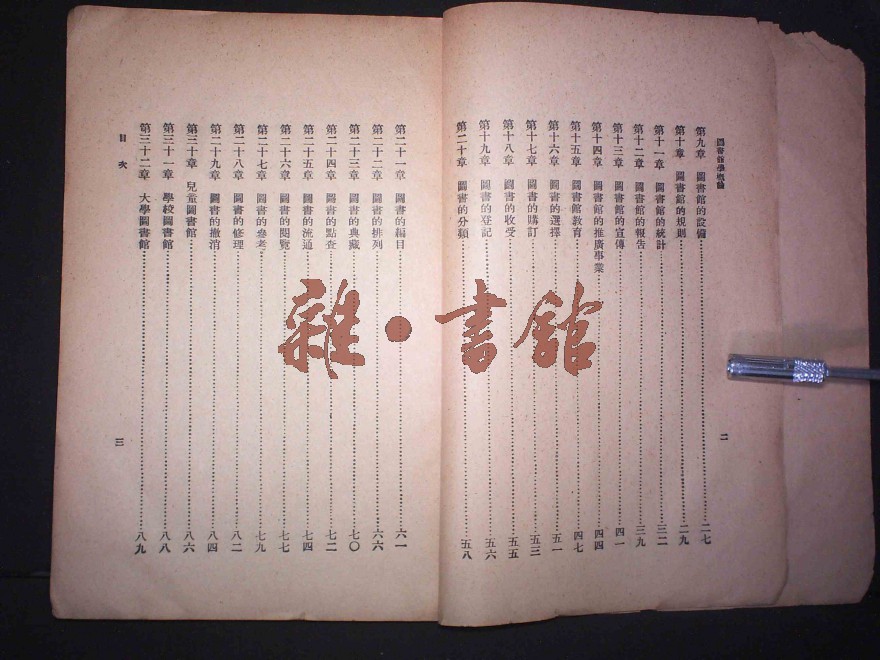 圖書館學概論
第九章　圖書館的設備……二七
第十章　圖書館的規則……二九
第十一章　圖書館的統計……三二
第十二章　圖書館的報告……三九
第十三章　圖書館的宣傳……四一
第十四章　圖書館的推廣事業……四四
第十五章　圖書館教育……四七
第十六章　圖書的選擇……五一
第十七章　圖書的購訂……五三
第十八章　圖書的收受……五五
第十九章　圖書的登記……五六
第二十章　圖書的分類……五八
二
第二十一章　圖書的編目……六一
第二十二章　圖書的排列……六六
第二十三章　圖書的典藏……七〇
第二十四章　圖書的點查……七二
第二十五章　圖書的流通……七四
第二十六章　圖書的閱覽……七七
第二十七章　圖書的參考……七九
第二十八章　圖書的修理……八二
第二十九章　圖書的撤消……八四
第三十章　兒童圖書館……八六
第三十一章　學校圖書館……八八
第三十二章　大學圖書館……八九
目次
三
雜・書館